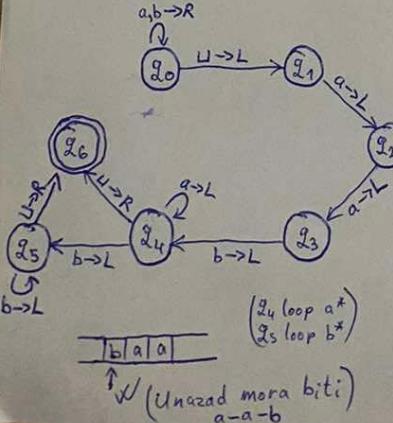 a,b→R
q0
⊔→L
q1
a→L
q2
a→L
q3
b→L
q4
a→L
⊔→R
q6
b→L
q5
⊔→R
b→L
(q4 loop a*)
(q5 loop b*)
b a a
(Unazad mora biti)
a-a-b